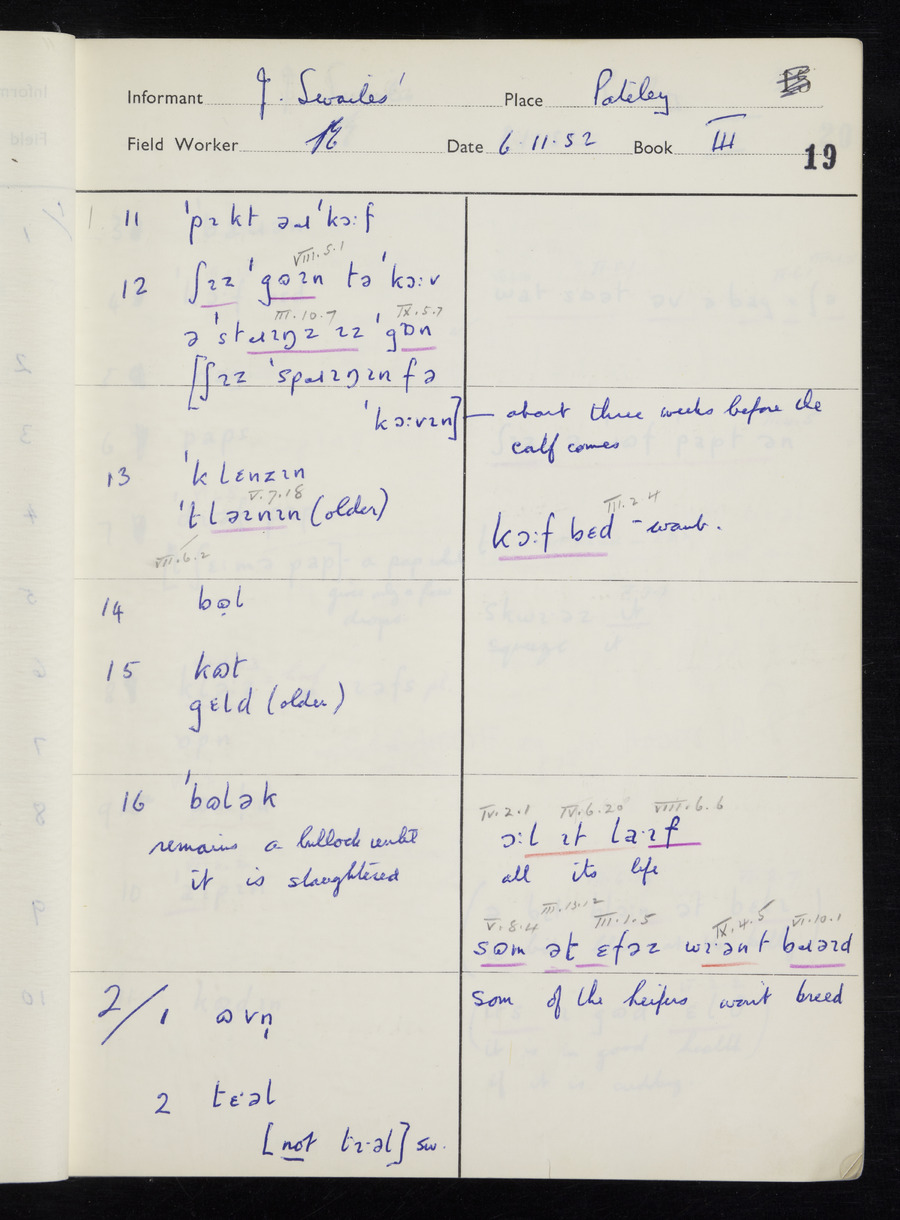 Informant J. Swailes Place Pateley
Field Worker Date 6.11.52 Book III 19
11 ˈpɪkt əɹ ˈkɔːf
VIII.5.1
12 ʃɪz ˈgɷɪn tə ˈkɔːv
III.10.7 IX.5.7
ə ˈstɹɪŋz ɪz ˈgɒn
[ʃɪz ˈspaɹɪŋɪn fə
ˈkɔːvɪn] — about three weeks before the
calf comes
13 ˈklɛnzɪn
V.7.18
ˈtləɪnɪn (older)
VII.6.2
III.2.4
kɔːf bɛd - womb.
14 bɷl
15 kɷt
gɛld (older)
16 ˈbɷlək
remains a bullock until
it is slaughtered
IV.2.1 IV.6.20 VIII.6.6
ɔːl ɪt laˑɪf
all its life
V.8.4 III.13.12 III.1.5 IX.4.5 VI.10.1
sɷm ət ɛfəz wɪˑənt bɹɪəd
som of the heifers won't breed
2/1 ɷvn̩
2 tɛˑəl
[not tɪˑəl] sw.